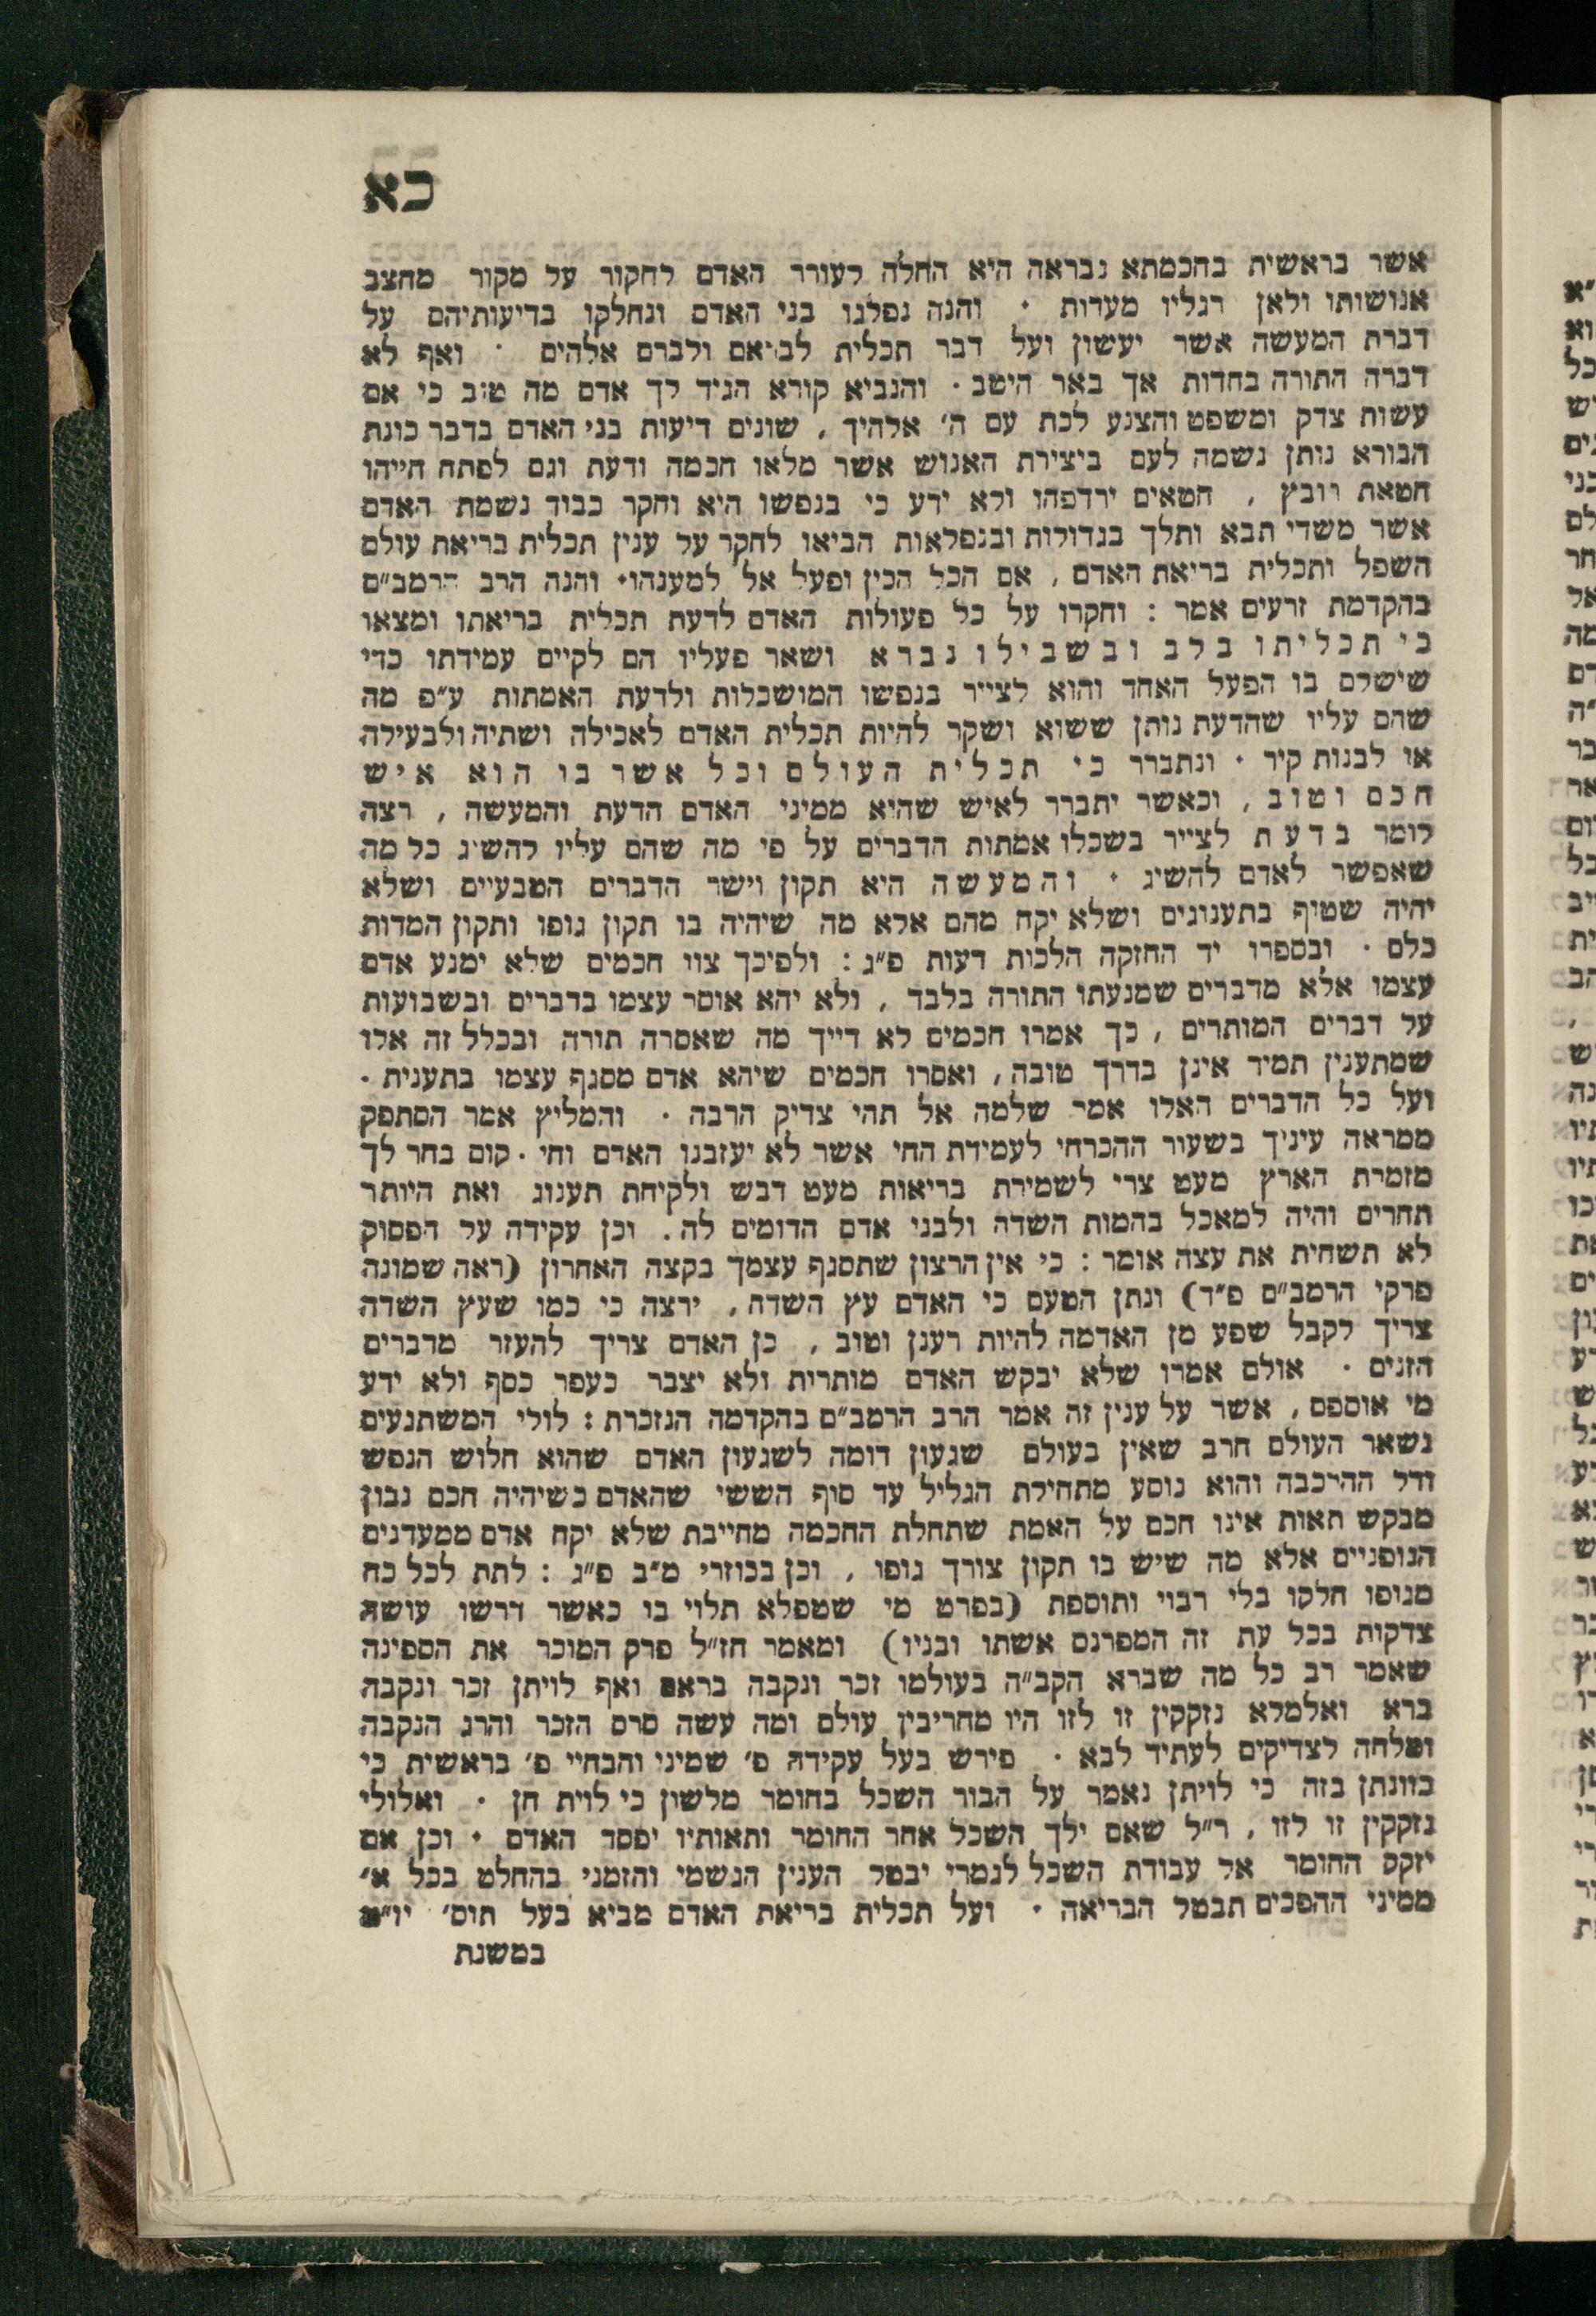 כא
אשר בראשית בחכמתא נבראה היא החלה לעורר האדם לחקור על מקור מחצב
אנושותו ולאן רגליו מעדות · והנה נפלגו בני האדם ונחלקו בדיעותיהם על
דברת המעשה אשר יעשון ועל דבר תכלית לבראם ולברם אלהים · ואף לא
דברה התורה בחדות אך באר היטב · והנביא קורא הגיד לך אדם מה טוב כי אם
עשות צדק ומשפט והצנע לכת עם ה׳ אלהיך , שונים דיעות בני האדם בדבר כונת
הבורא נותן נשמה לעם ביצירת האנוש אשר מלאו חכמה ודעת וגם לפתח חייהו
חטאת רובץ , חטאים ירדפהו ולא ידע כי בנפשו היא וחקר כבוד נשמת האדם
אשר משדי תבא ותלך בגדולות ובנפלאות הביאו לחקר על ענין תכלית בריאת עולם
השפל ותכלית בריאת האדם , אם הכל הכין ופעל אל למענהו· והנה הרב הרמב״ם
בהקדמת זרעים אמר : וחקרו על כל פעולות האדם לדעת תכלית בריאתו ומצאו
כי תכליתו בלב ובשבילו נברא ושאר פעליו הם לקיים עמידתו כדי
שישלם בו הפעל האחד והוא לצייר בנפשו המושכלות ולדעת האמתות ע״פ מה
שהם עליו שהדעת נותן ששוא ושקר להיות תכלית האדם לאכילה ושתיה ולבעילה
או לבנות קיר · ונתברר כי תכלית העולם וכל אשר בו הוא איש
חכם וטוב , וכאשר יתברר לאיש שהיא ממיני האדם הדעת והמעשה , רצה
לומר בדעת לצייר בשכלו אמתות הדברים על פי מה שהם עליו להשיג כל מה
שאפשר לאדם להשיג · והמעשה היא תקון וישר הדברים הטבעיים ושלא
יהיה שטוף בתענוגים ושלא יקח מהם אלא מה שיהיה בו תקון גופו ותקון המדות
כלם · ובספרו יד החזקה הלכות דעות פ״ג : ולפיכך צוו חכמים שלא ימנע אדם
עצמו אלא מדברים שמנעתו התורה בלבד , ולא יהא אוסר עצמו בדברים ובשבועות
על דברים המותרים , כך אמרו חכמים לא דייך מה שאסרה תורה ובכלל זה אלו
שמתענין תמיד אינן בדרך טובה , ואסרו חכמים שיהא אדם מסגף עצמו בתענית ·
ועל כל הדברים האלו אמר שלמה אל תהי צדיק הרבה · והמליץ אמר הסתפק
ממראה עיניך בשעור ההכרחי לעמידת החי אשר לא יעזבנו האדם וחי · קום בחר לך
מזמרת הארץ מעט צרי לשמירת בריאות מעט דבש ולקיחת תענוג ואת היותר
תחרים והיה למאכל בהמות השדה ולבני אדם הדומים לה . וכן עקידה על הפסוק
לא תשחית את עצה אומר : כי אין הרצון שתסגף עצמך בקצה האחרון (ראה שמונה
פרקי הרמב״ם פ״ד) ונתן הטעם כי האדם עץ השדה , ירצה כי כמו שעץ השדה
צריך לקבל שפע מן האדמה להיות רענן וטוב , כן האדם צריך להעזר מדברים
הזנים · אולם אמרו שלא יבקש האדם מותרות ולא יצבר כעפר כסף ולא ידע
מי אוספם , אשר על ענין זה אמר הרב הרמב״ם בהקדמה הנזכרת : לולי המשתגעים
נשאר העולם חרב שאין בעולם שגעון דומה לשגעון האדם שהוא חלוש הנפש
ודל ההרכבה והוא נוסע מתחילת הגליל עד סוף הששי שהאדם כשיהיה חכם נבון
מבקש תאות אינו חכם על האמת שתחלת החכמה מחייבת שלא יקח אדם ממעדנים
הגופניים אלא מה שיש בו תקון צורך גופו , וכן בכוזרי מ״ב פ״ג : לתת לכל כח
מגופו חלקו בלי רבוי ותוספת (בפרט מי שטפלא תלוי בו כאשר דרשו עושה
צדקות בכל עת זה המפרנס אשתו ובניו) ומאמר חז״ל פרק המוכר את הספינה
שאמר רב כל מה שברא הקב״ה בעולמו זכר ונקבה בראם ואף לויתן זכר ונקבה
ברא ואלמלא נזקקין זו לזו היו מחריבין עולם ומה עשה סרס הזכר והרג הנקבה
ומלחה לצדיקים לעתיד לבא · פירש בעל עקידה פ׳ שמיני והבחיי פ׳ בראשית כי
כוונתן בזה כי לויתן נאמר על הבור השכל בחומר מלשון כי לוית חן · ואלולי
נזקקין זו לזו , ר״ל שאם ילך השכל אחר החומר ותאותיו יפסד האדם · וכן אם
יזקק החומר אל עבודת השכל לגמרי יבטל הענין הגשמי והזמני בהחלט בכל א׳
ממיני ההפכים תבטל הבריאה · ועל תכלית בריאת האדם מביא בעל תוס׳ יו״ט
במשנת